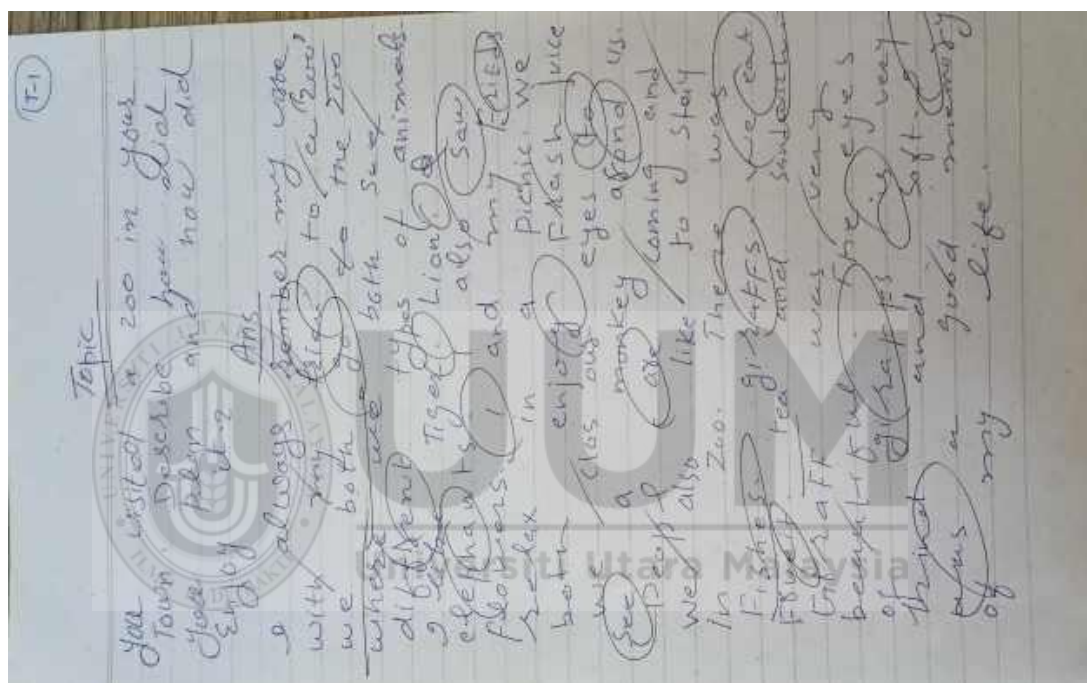 T-1
Topic
You visited a zoo in your
Town. Describe how did
you plan and how did
Enjoy it?
Ans
I always remember my visite
with my to a Zoo,
we both go to the Zoo
where we both see
different types of animals
Tiger, Lion,
elephant, i also saw
flowers, i and my FRIEDs
relax in a picnic. we
both enjoy FRESH juice
we clos our eyes to
see a monkey around us.
people are coming and
we also like to stay
in Zoo. There was
Fishes, giraffs, we eat
tea and
Giraff was very
beautiful. The eyes
of giraffs is very
and soft. 
was a good memory
of my life.
UUM
Universiti Utara Malaysia
UNIVERSITI UTARA MALAYSIA